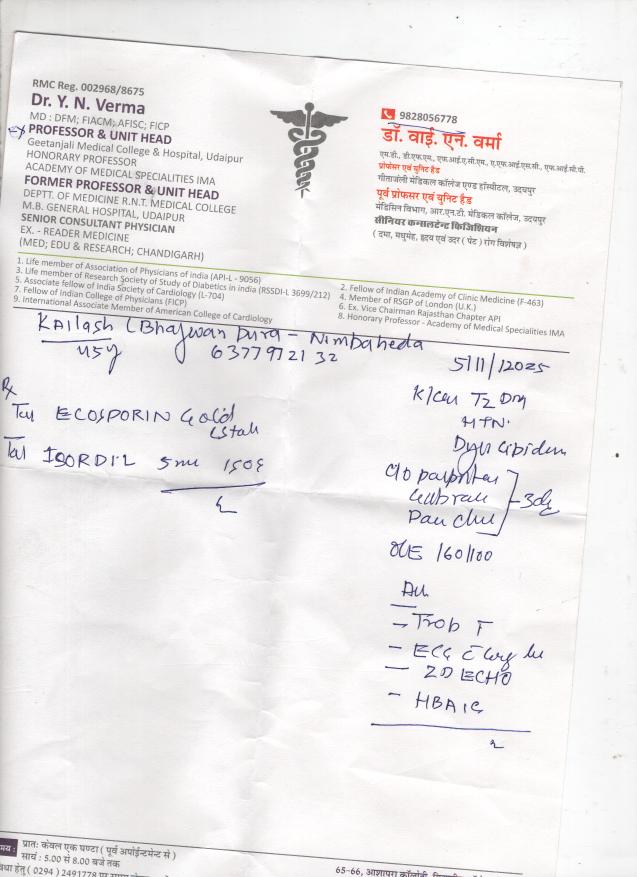 RMC Reg. 002968/8675
Dr. Y. N. Verma
MD : DFM; FIACM; AFISC; FICP
Ex PROFESSOR & UNIT HEAD
Geetanjali Medical College & Hospital, Udaipur
HONORARY PROFESSOR
ACADEMY OF MEDICAL SPECIALITIES IMA
FORMER PROFESSOR & UNIT HEAD
DEPTT. OF MEDICINE R.N.T. MEDICAL COLLEGE
M.B. GENERAL HOSPITAL, UDAIPUR
SENIOR CONSULTANT PHYSICIAN
EX. - READER MEDICINE
(MED; EDU & RESEARCH; CHANDIGARH)
9828056778
डॉ. वाई. एन. वर्मा
एम.डी., डी.एफ.एम., एफ.आई.ए.सी.एम., ए.एफ.आई.एस.सी., एफ.आई.सी.पी.
प्रोफेसर एवं यूनिट हैड
गीतांजली मेडिकल कॉलेज एण्ड हॉस्पीटल, उदयपुर
पूर्व प्रोफेसर एवं यूनिट हैड
मेडिसिन विभाग, आर.एन.टी. मेडिकल कॉलेज, उदयपुर
सीनियर कन्सलटेन्ट फिजिशियन
( दमा, मधुमेह, हृदय एवं उदर ( पेट ) रोग विशेषज्ञ )
1. Life member of Association of Physicians of india (API-L - 9056)
2. Fellow of Indian Academy of Clinic Medicine (F-463)
3. Life member of Research Society of Study of Diabetics in india (RSSDI-L 3699/212)
4. Member of RSGP of London (U.K.)
5. Associate fellow of India Society of Cardiology (L-704)
6. Ex. Vice Chairman Rajasthan Chapter API
7. Fellow of Indian College of Physicians (FICP)
8. Honorary Professor - Academy of Medical Specialities IMA
9. International Associate Member of American College of Cardiology
Kailash (Bhagwan Pura - Nimbaheda
45y 6377972132
5/11/2025
Rx
Tab ECOSPORIN Gold
Tab ISORDIL 5mg
T2 DM
HTN
160/100
- Trop T
- ECG
- 2D ECHO
- HBA1C
प्रातः केवल एक घण्टा ( पूर्व अपॉईन्टमेन्ट से )
सायं : 5.00 से 8.00 बजे तक
हेतु ( 0294 ) 2491778
65-66,